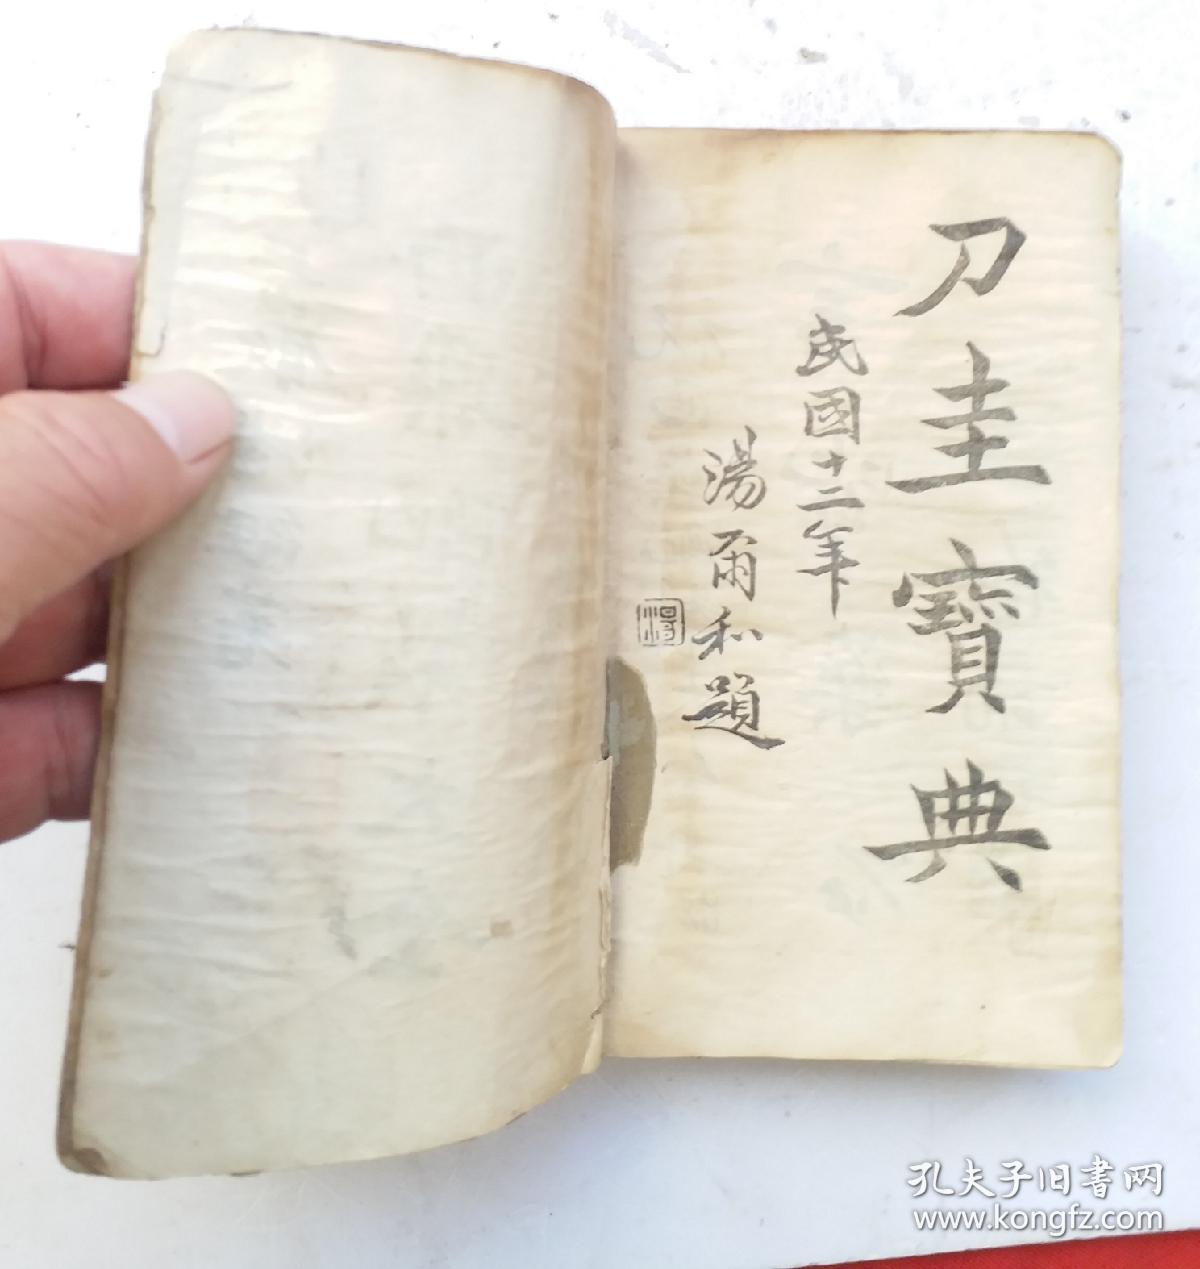 刀圭寶典
民國十二年
湯爾和題
孔夫子旧書网
www.kongfz.com